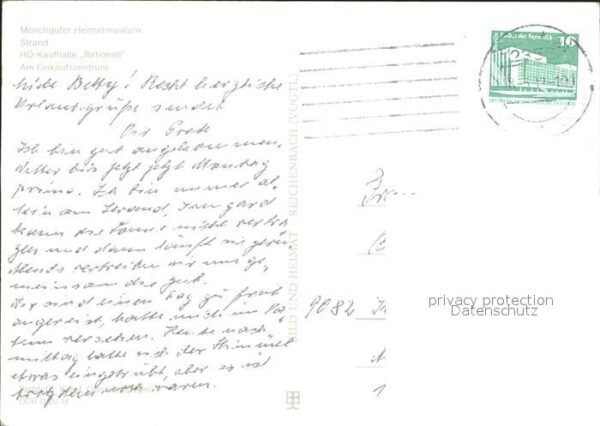 Mönchguter Heimatmuseum
Strand
HO-Kaufhalle „Rationell"
Am Einkaufszentrum
Liebe Betty! Recht herzliche
Urlaubsgrüße sendet
Dir Grete
Ich bin gut angekommen,
Wetter bis jetzt jetzt Montag
prima. Ich bin immer al-
lein am Strand, Irmgard
kann die Sonne nicht vertra-
gen und dann
Abends vertreiben wir uns ge-
meinsam die Zeit.
Wir sind einen Tag zu früh
angereist, hatte mich im Da-
tum versehen. Heute nach-
mittag hatte sich der Himmel
etwas eingetrübt, aber es ist
trotzdem noch warm.
BILD UND HEIMAT REICHENBACH (VOGTL)
16
Palast der Republik
9082
privacy protection
Datenschutz